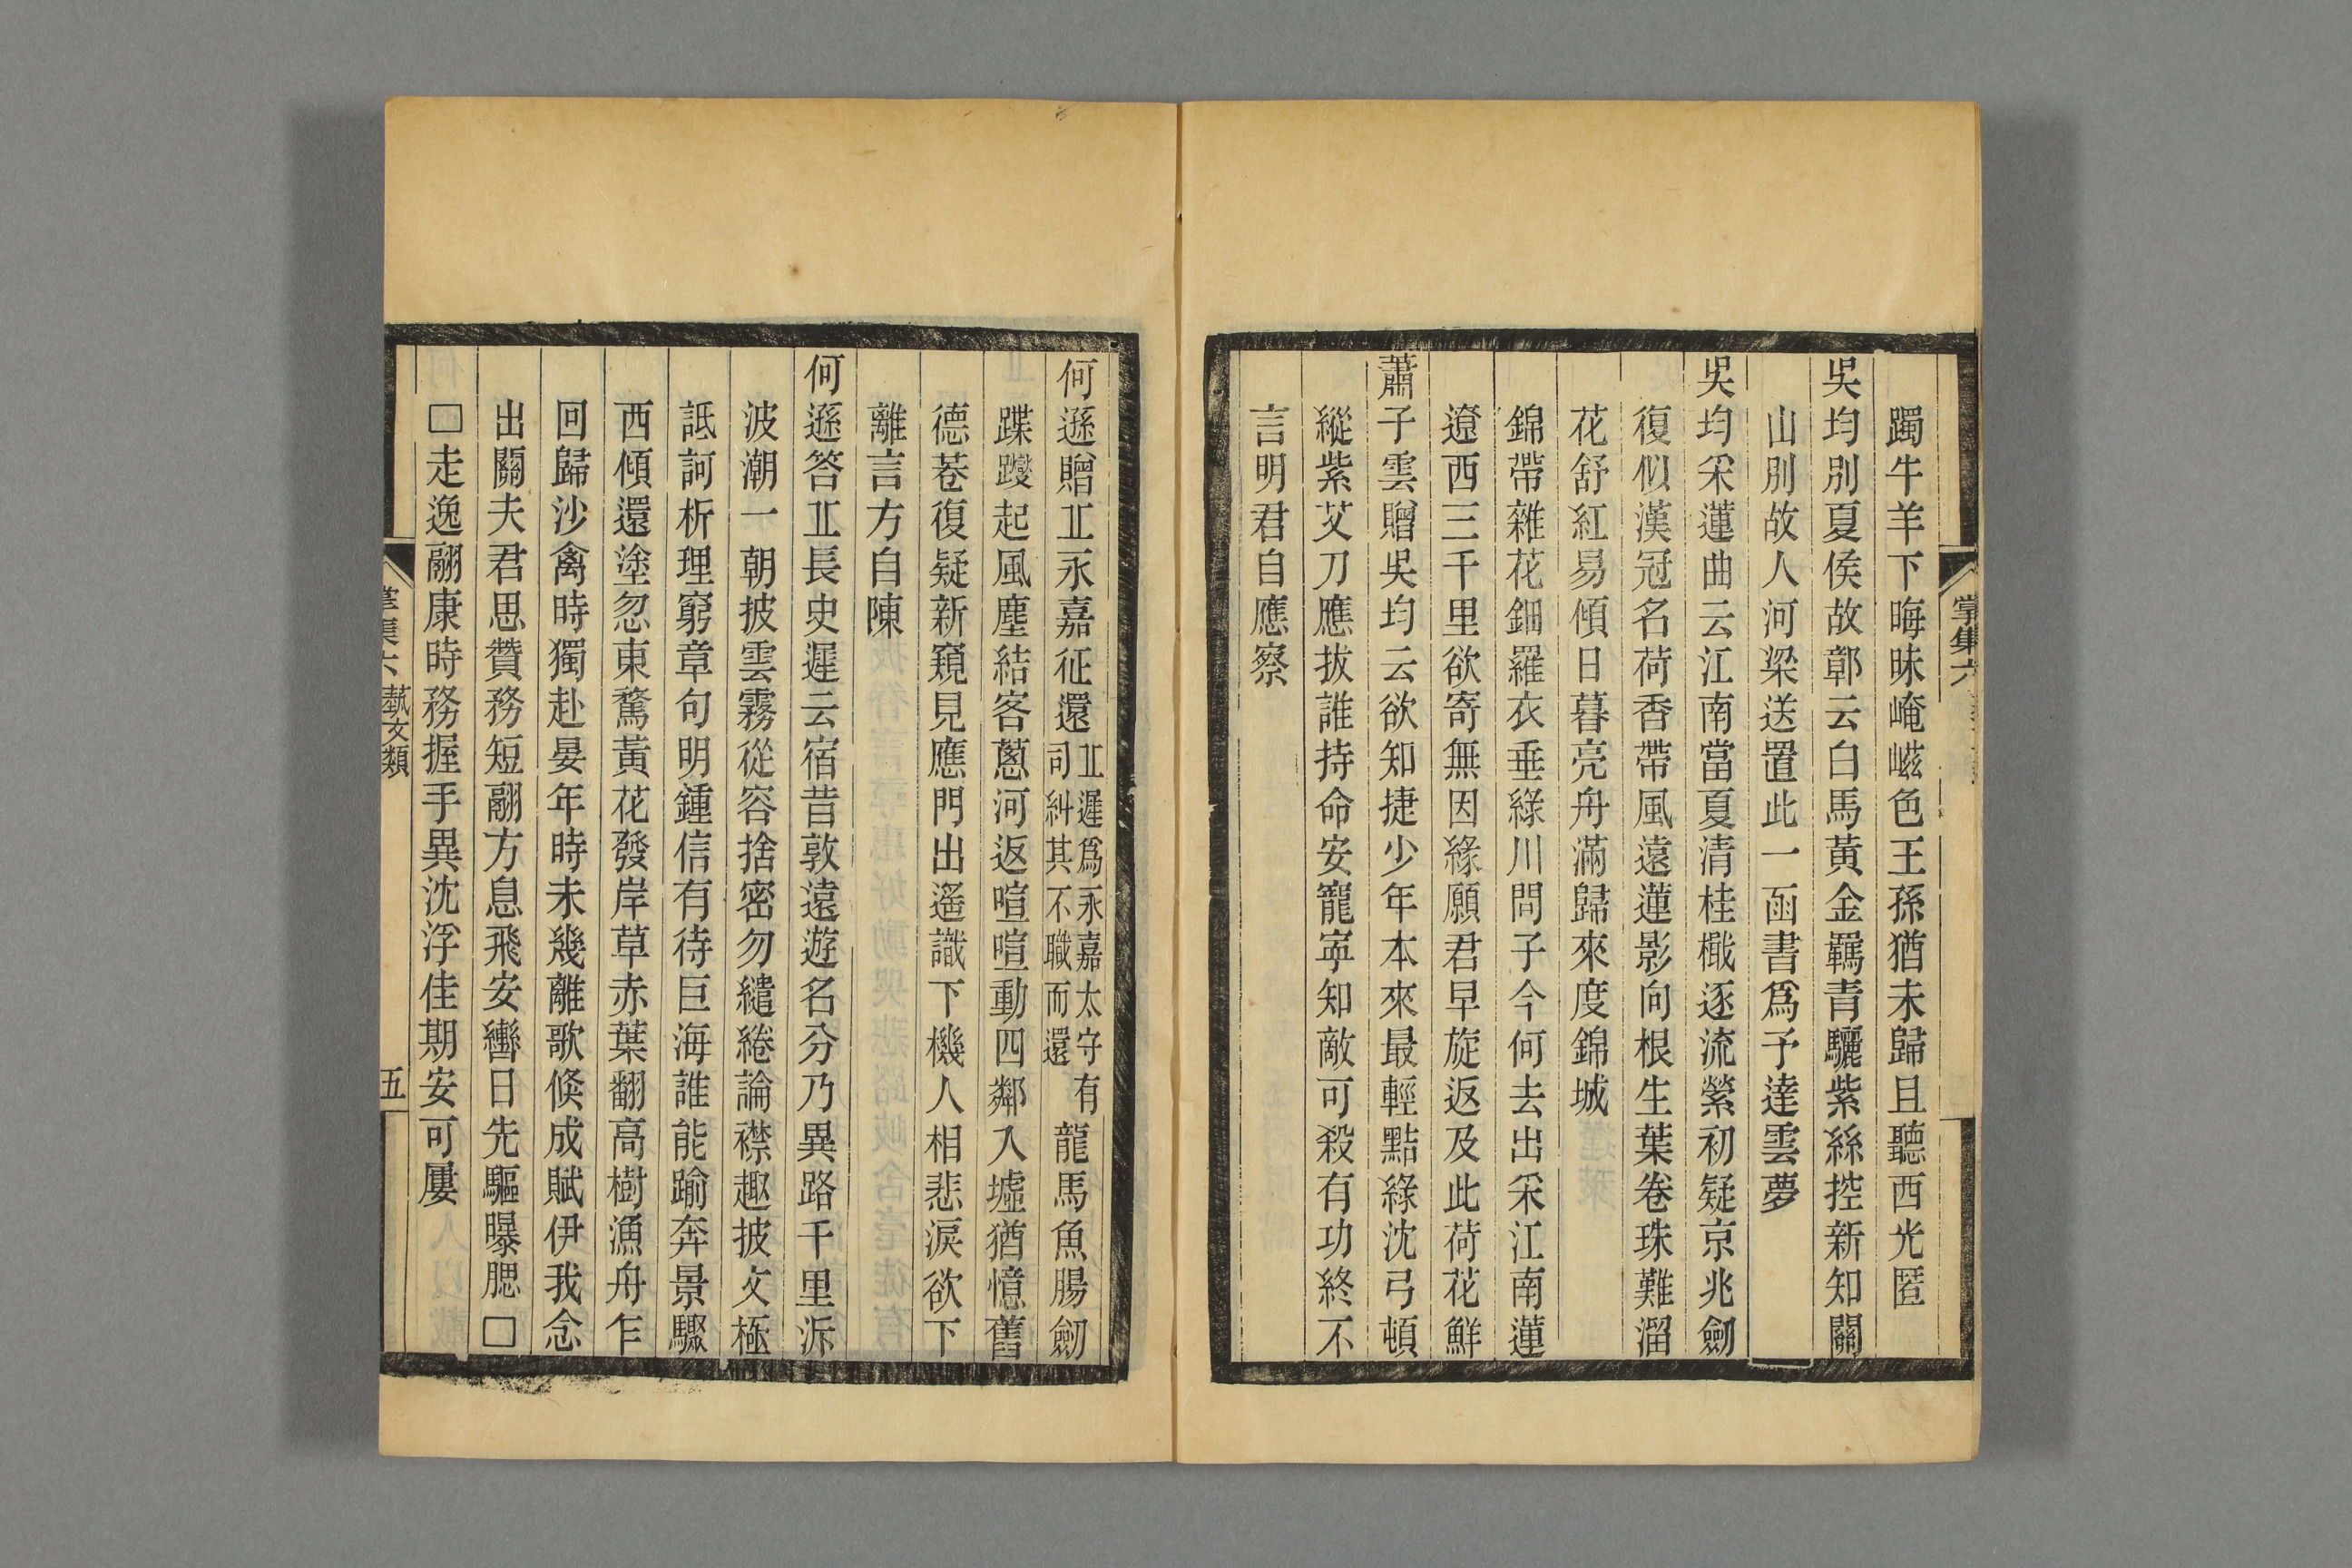 躅牛羊下晦昧崦嵫色王孫猶未歸且聽西光匿
吳均別夏侯故鄣云白馬黃金羈青驪紫絲控新知關
山別故人河梁送置此一函書爲予達雲夢
吳均采蓮曲云江南當夏清桂檝逐流縈初疑京兆劒
復似漢冠名荷香帶風遠蓮影向根生葉卷珠難溜
花舒紅易傾日暮亮舟滿歸來度錦城
錦帶雜花鈿羅衣垂綠川問子今何去出采江南蓮
遼西三千里欲寄無因緣願君早旋返及此荷花鮮
蕭子雲贈吳均云欲知捷少年本來最輕點綠沈弓頓
縱紫艾刀應拔誰持命安寵寧知敵可殺有功終不
言明君自應察
掌集六
何遜贈丠永嘉征還丠遲爲永嘉太守有司糾其不職而還龍馬魚腸劒
蹀躞起風塵結客蔥河返喧喧動四鄰入墟猶憶舊
德巷復疑新窺見應門出遙識下機人相悲淚欲下
離言方自陳
何遜答丠長史遲云宿昔敦遠遊名分乃異路千里泝
波潮一朝披雲霧從容捨密勿繾綣論襟趣披文極
詆訶析理窮章句明鍾信有待巨海誰能踰奔景驟
西傾還塗忽東騖黃花發岸草赤葉翻高樹漁舟乍
回歸沙禽時獨赴晏年時未幾離歌倐成賦伊我念
出關夫君思贊務短翮方息飛安轡日先驅曝腮□
□走逸翮康時務握手異沈浮佳期安可屢
掌集六 藝文類 五